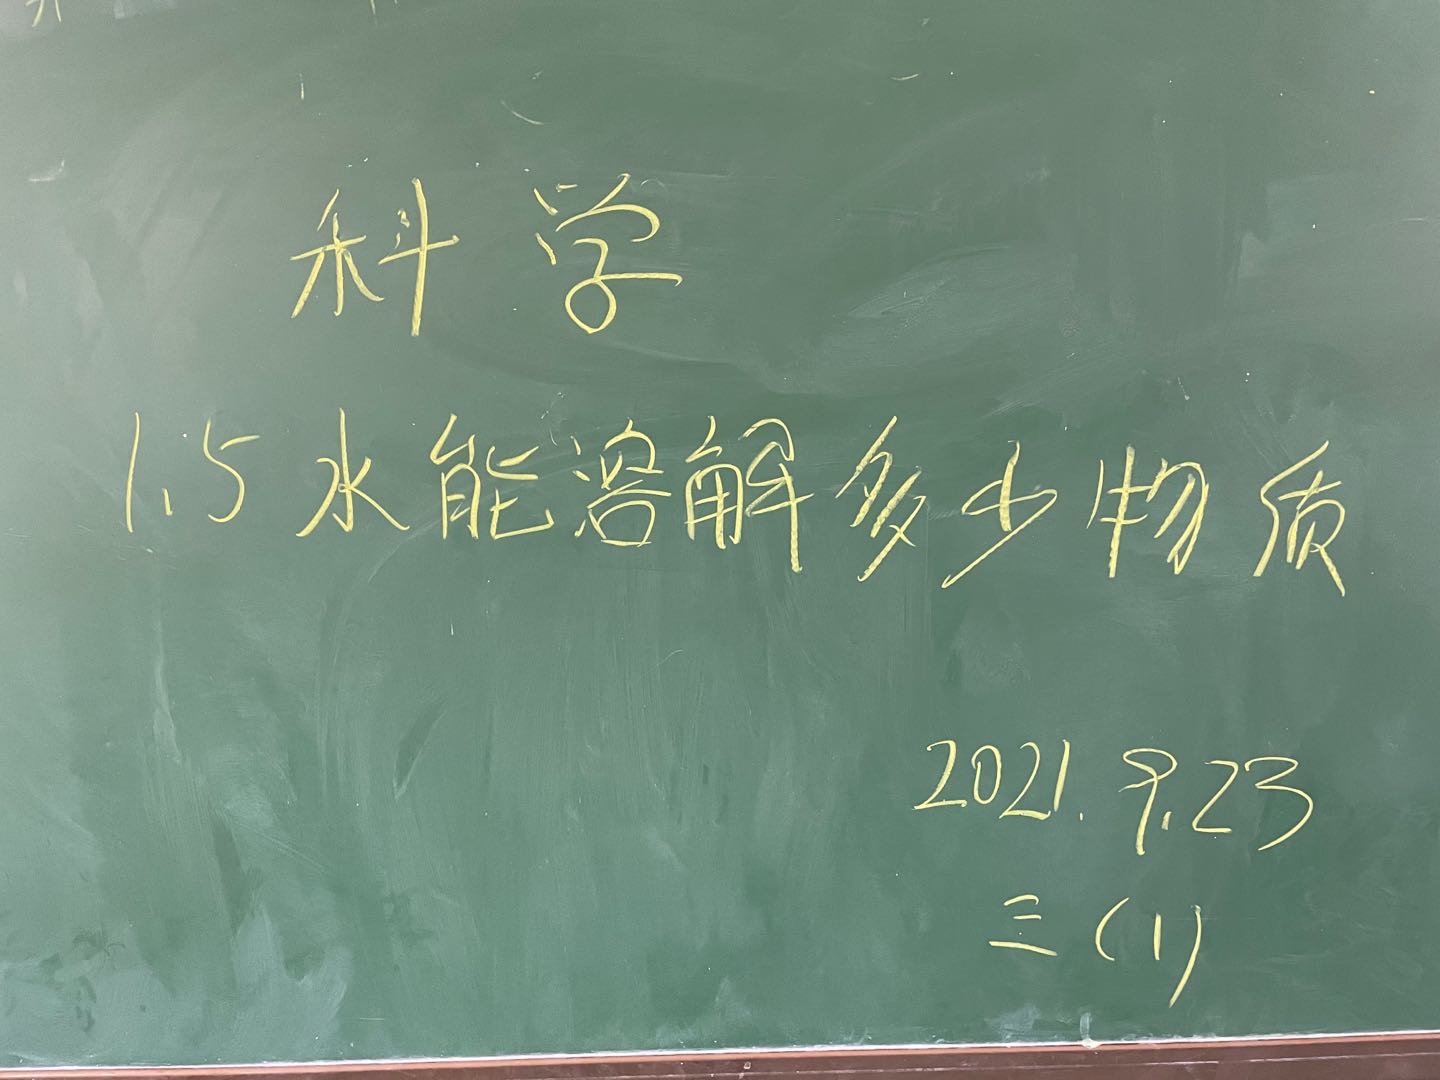 科学
1.5 水能溶解多少物质
2021.9.23
三(1)